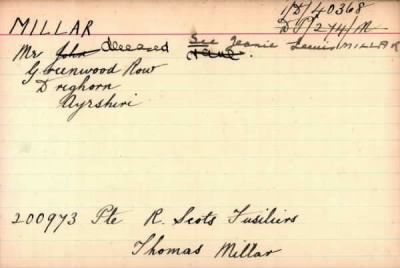 1D/40368
MILLAR D P/274/M
Mr John deceased See Jeanie Lewis MILLAR
Greenwood Row
Dreghorn
Ayrshire
200973 Pte R. Scots Fusiliers
Thomas Millar